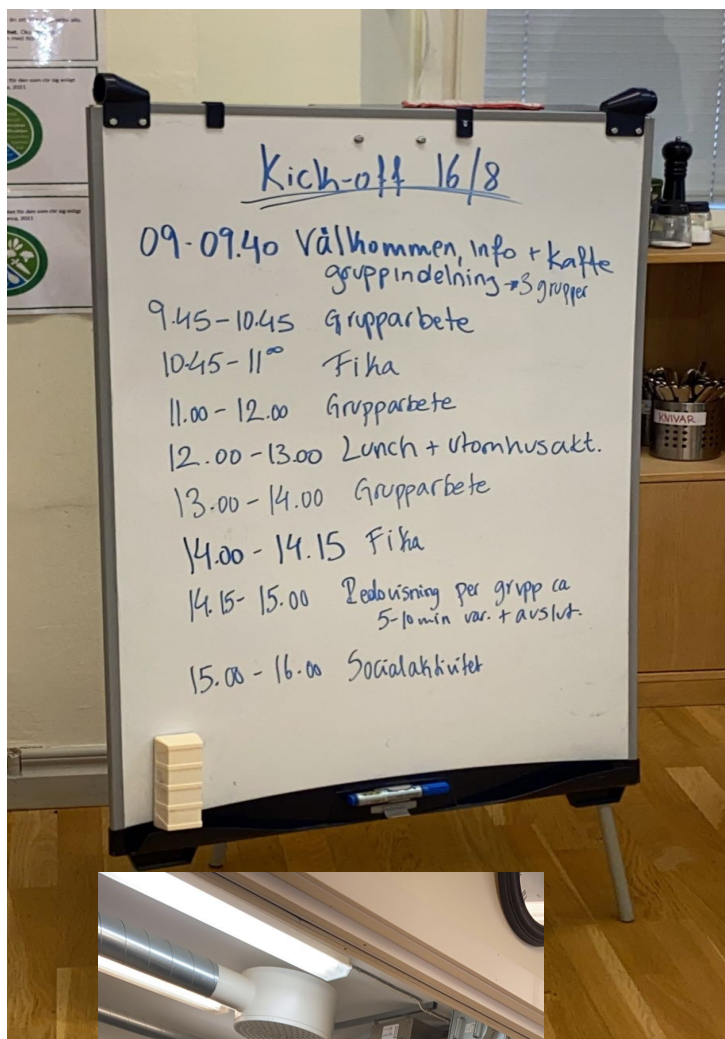 Kick-off 16/8
09-09.40 Välkommen, Info + kaffe
gruppindelning → 3 grupper
9.45-10.45 Grupparbete
10.45-11⁰⁰ Fika
11.00-12.00 Grupparbete
12.00-13.00 Lunch + utomhusakt.
13.00-14.00 Grupparbete
14.00-14.15 Fika
14.15-15.00 Redovisning per grupp ca
5-10 min var. + avslut.
15.00-16.00 Socialaktivitet
KNIVAR